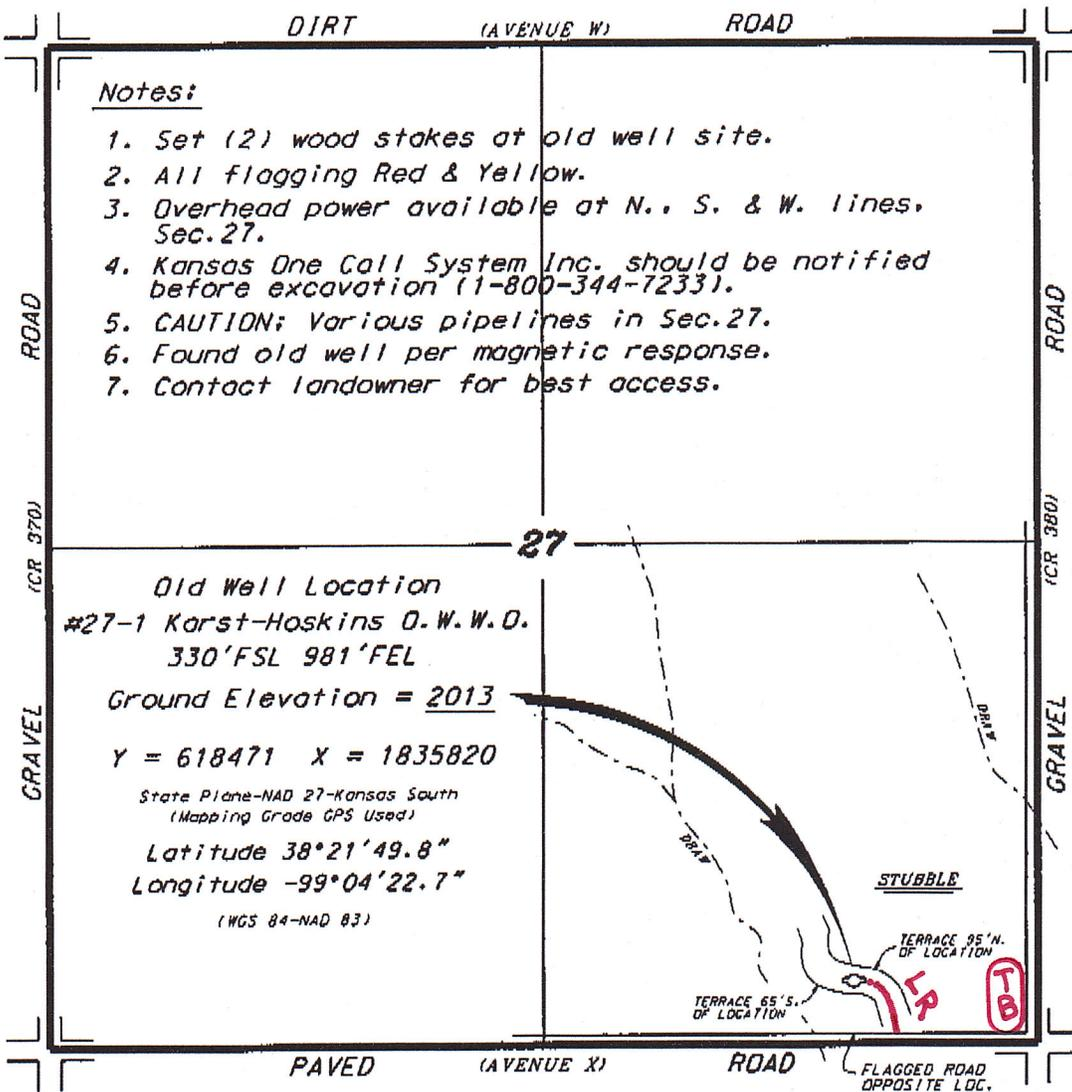 DIRT (AVENUE W) ROAD
Notes:
1. Set (2) wood stakes at old well site.
2. All flagging Red & Yellow.
3. Overhead power available at N., S. & W. lines,
Sec.27.
4. Kansas One Call System Inc. should be notified
before excavation (1-800-344-7233).
5. CAUTION: Various pipelines in Sec.27.
6. Found old well per magnetic response.
7. Contact landowner for best access.
ROAD
(CR 370)
GRAVEL
ROAD
(CR 380)
GRAVEL
27
Old Well Location
#27-1 Karst-Hoskins O.W.W.O.
330'FSL 981'FEL
Ground Elevation = 2013
Y = 618471 X = 1835820
State Plane-NAD 27-Kansas South
(Mapping Grade GPS Used)
Latitude 38°21'49.8"
Longitude -99°04'22.7"
(WGS 84-NAD 83)
DRAW
DRAW
STUBBLE
TERRACE 95'N.
OF LOCATION
TERRACE 65'S.
OF LOCATION
LR
TB
PAVED (AVENUE X) ROAD
FLAGGED ROAD
OPPOSITE LOC.